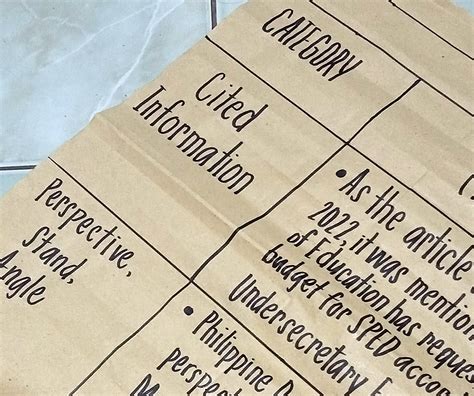 CATEGORY
Cited
Information
• As the article
2022, it was mention
of Education has reques
budget for SPED accor
Undersecretary E
Perspective,
Stand,
Angle
• Philippine
perspect